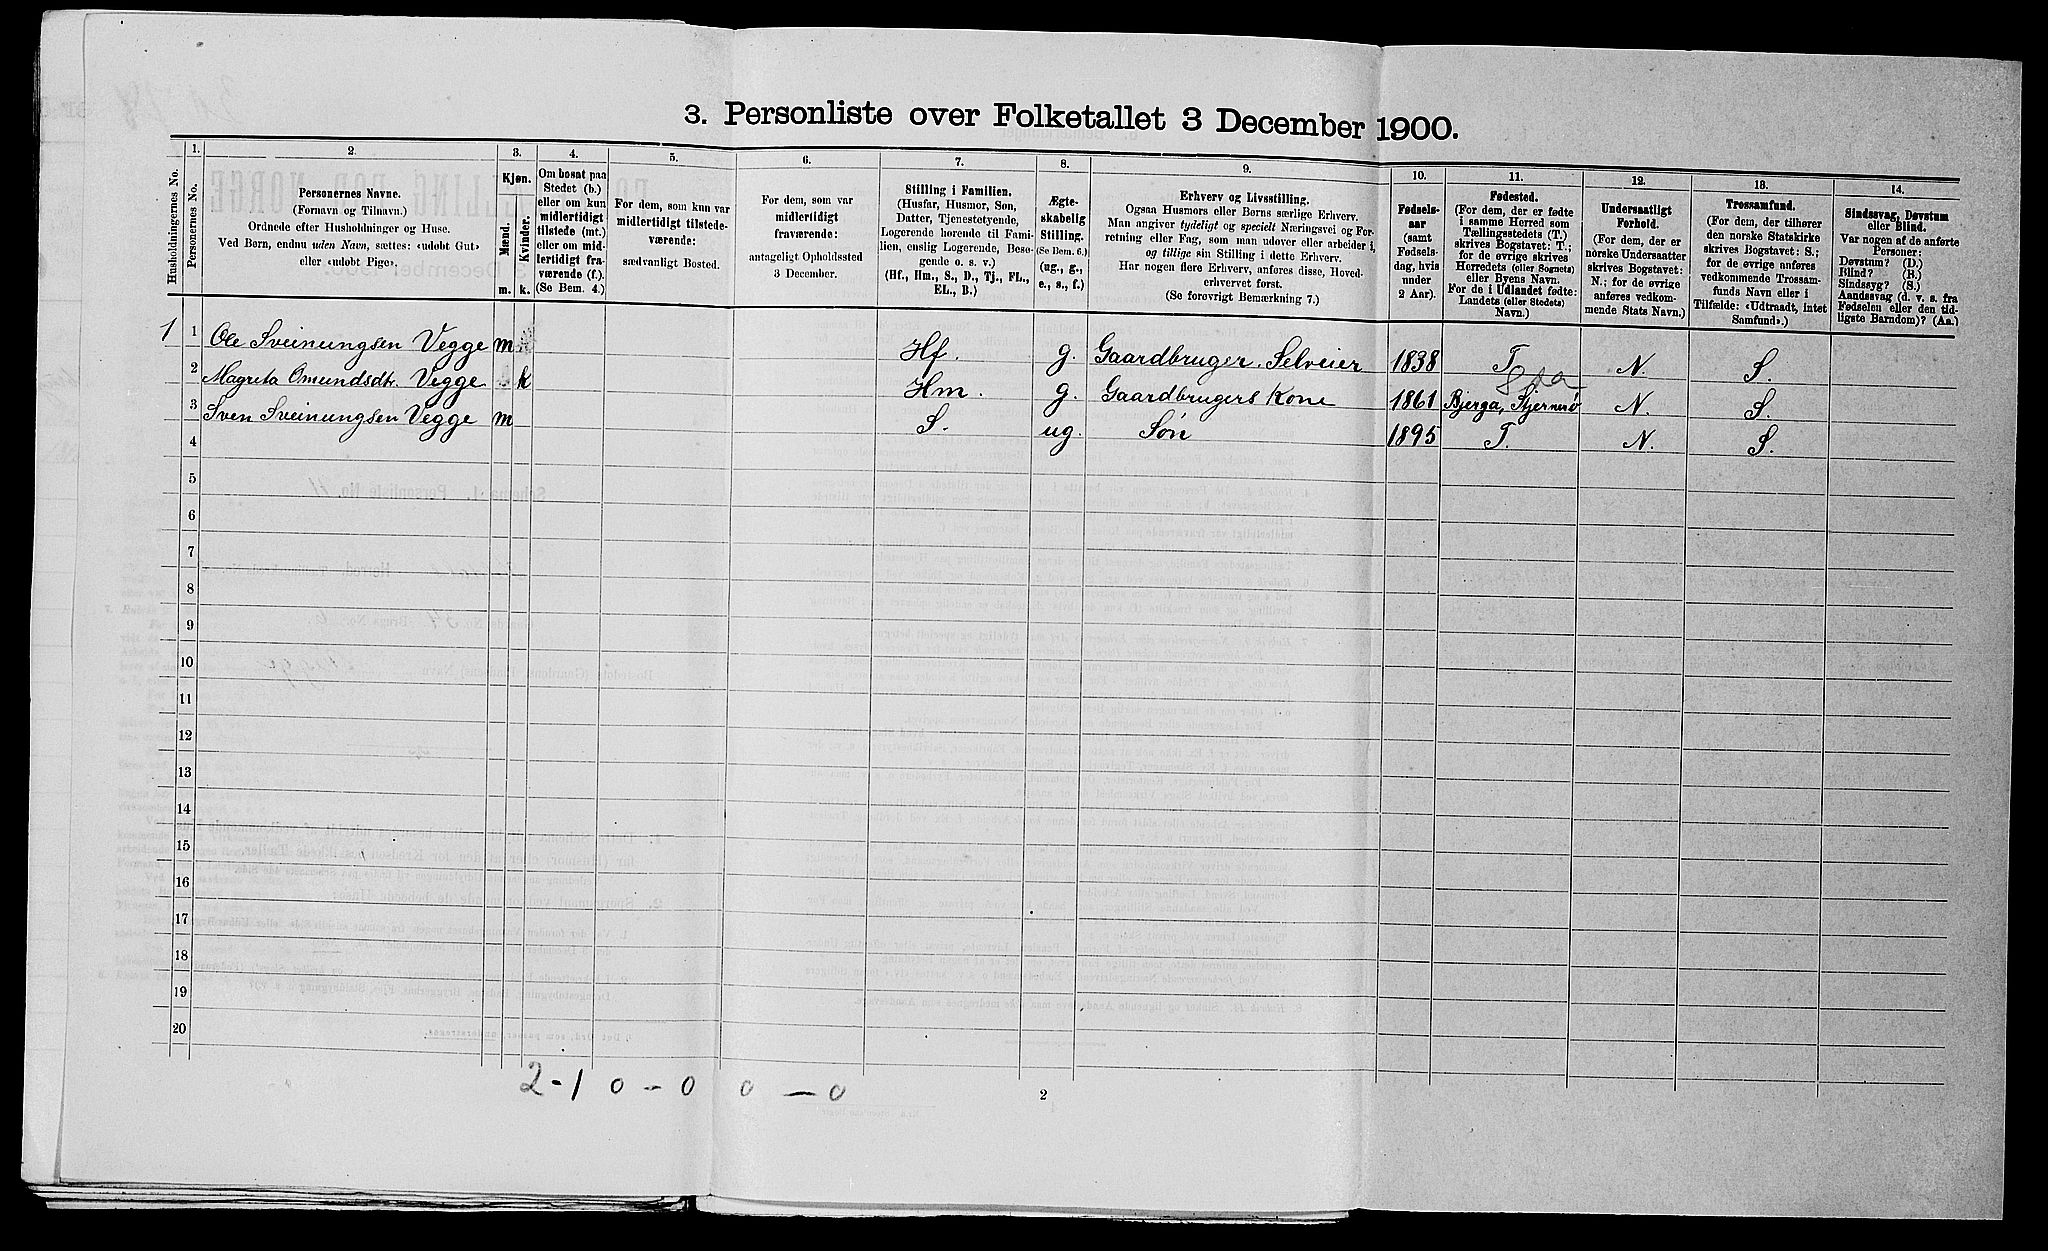 3. Personliste over Folketallet 3 December 1900.
Husholdningernes No.
1.
Personernes No.
2.
Personernes Navne.
(Fornavn og Tilnavn.)
Ordnede efter Husholdninger og Huse.
Ved Børn, endnu uden Navn, sættes: «udøbt Gut»
eller «udøbt Pige».
3.
Kjøn.
Mænd.
Kvinder.
m.
k.
4.
Om bosat paa
Stedet (b.)
eller om kun
midlertidigt
tilstede (mt.)
eller om mid-
lertidigt fra-
værende (f.).
(Se Bem. 4.)
5.
For dem, som kun var
midlertidigt tilstede-
værende:
sædvanligt Bosted.
6.
For dem, som var
midlertidigt
fraværende:
antageligt Opholdssted
3 December.
7.
Stilling i Familien.
(Husfar, Husmor, Søn,
Datter, Tjenestetyende,
Logerende hørende til Fami-
lien, enslig Logerende, Besø-
gende o. s. v.)
(Hf., Hm., S., D., Tj., FL.,
EL., B.)
8.
Ægte-
skabelig
Stilling.
(Se Bem. 6.)
(ug., g.,
e., s., f.)
9.
Erhverv og Livsstilling.
Ogsaa Husmors eller Børns særlige Erhverv.
Man angiver tydeligt og specielt Næringsvei og For-
retning eller Fag, som man udøver eller arbeider i,
og tillige sin Stilling i dette Erhverv.
Har nogen flere Erhverv, anføres disse, Hoved-
erhvervet først.
(Se forøvrigt Bemærkning 7.)
10.
Fødsels-
aar
(samt
Fødsels-
dag, hvis
under
2 Aar).
11.
Fødested.
(For dem, der er fødte
i samme Herred som
Tællingsstedets (T.)
skrives Bogstavet: T.;
for de øvrige skrives
Herredets (eller Sognets)
eller Byens Navn.
For de i Udlandet fødte:
Landets (eller Stedets)
Navn.)
12.
Undersaatligt
Forhold.
(For dem, der er
norske Undersaatter
skrives Bogstavet:
N.; for de øvrige
anføres vedkom-
mende Stats Navn.)
13.
Trossamfund.
(For dem, der tilhører
den norske Statskirke
skrives Bogstavet: S.;
for de øvrige anføres
vedkommende Trossam-
funds Navn eller i
Tilfælde: «Udtraadt, intet
Samfund».)
14.
Sindssvag, Døvstum
eller Blind.
Var nogen af de anførte
Personer:
Døvstum? (D.)
Blind? (B.)
Sindssyg? (S.)
Aandssvag (d. v. s. fra
Fødselen eller den tid-
ligste Barndom)? (Aa.)
1 1 Ole Sveinungsen Vegge m Hf. g. Gaardbruger, Selveier 1838 T. N. S.
2 Magreta Omundsdt. Vegge k Hm. g. Gaardbrugers Kone 1861 Bjerga, Stjernerø N. S.
3 Sven Sveinungsen Vegge m S. ug. Søn 1895 T. N. S.
4
5
6
7
8
9
10
11
12
13
14
15
16
17
18
19
20
2-1 0 - 0 0 - 0
2